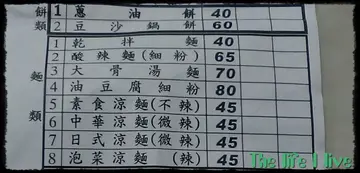 餅類
1 蔥油餅 40
2 豆沙鍋餅 60
麵類
1 乾拌麵 40
2 酸辣麵(細粉) 65
3 大骨湯麵 70
4 油豆腐細粉 80
5 素食涼麵(不辣) 45
6 中華涼麵(微辣) 45
7 日式涼麵(微辣) 45
8 泡菜涼麵(辣) 45
The life I live